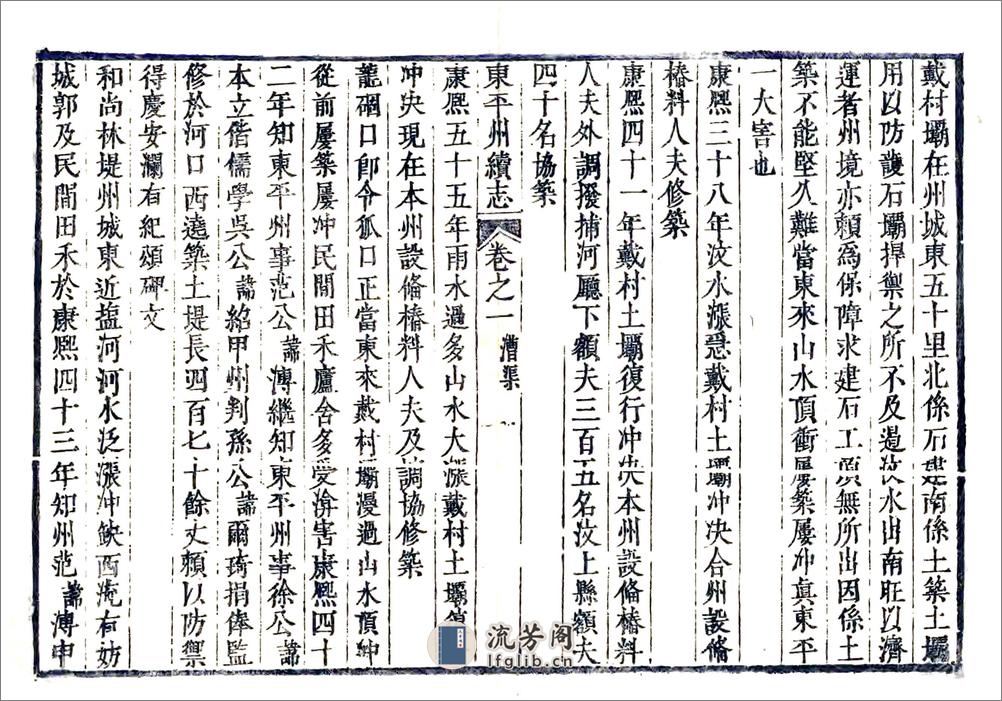 戴村壩在州城東五十里北係石建南係土築土壩
用以防護石壩捍禦之所不及遏汶水出南旺以濟
運者州境亦賴爲保障求建石工項無所出因係土
築不能堅久難當東來山水頂衝屢築屢冲眞東平
一大害也
康熙三十八年汶水漲急戴村土壩冲决合州設備
樁料人夫修築
康熙四十一年戴村土壩復行冲决本州設備樁料
人夫外調撥捕河廳下額夫三百五名汶上縣額夫
四十名協築
東平州續志 卷之一 漕渠
康熙五十五年雨水過多山水大漲戴村土壩
冲决現在本州設備樁料人夫及調協修築
龍堌口卽令狐口正當東來戴村壩漫過山水頂冲
從前屢築屢冲民間田禾廬舍多受渰害康熙四十
二年知東平州事范公諱溥繼知東平州事徐公諱
本立偕儒學吳公諱紹甲州判孫公諱爾琦捐俸監
修於河口西遶築土堤長四百七十餘丈賴以防禦
得慶安瀾有紀頌碑文
和尚林堤州城東近塩河河水泛漲冲缺西淹有妨
城郭及民間田禾於康熙四十三年知州范諱溥申
流芳阁
lfglib.cn